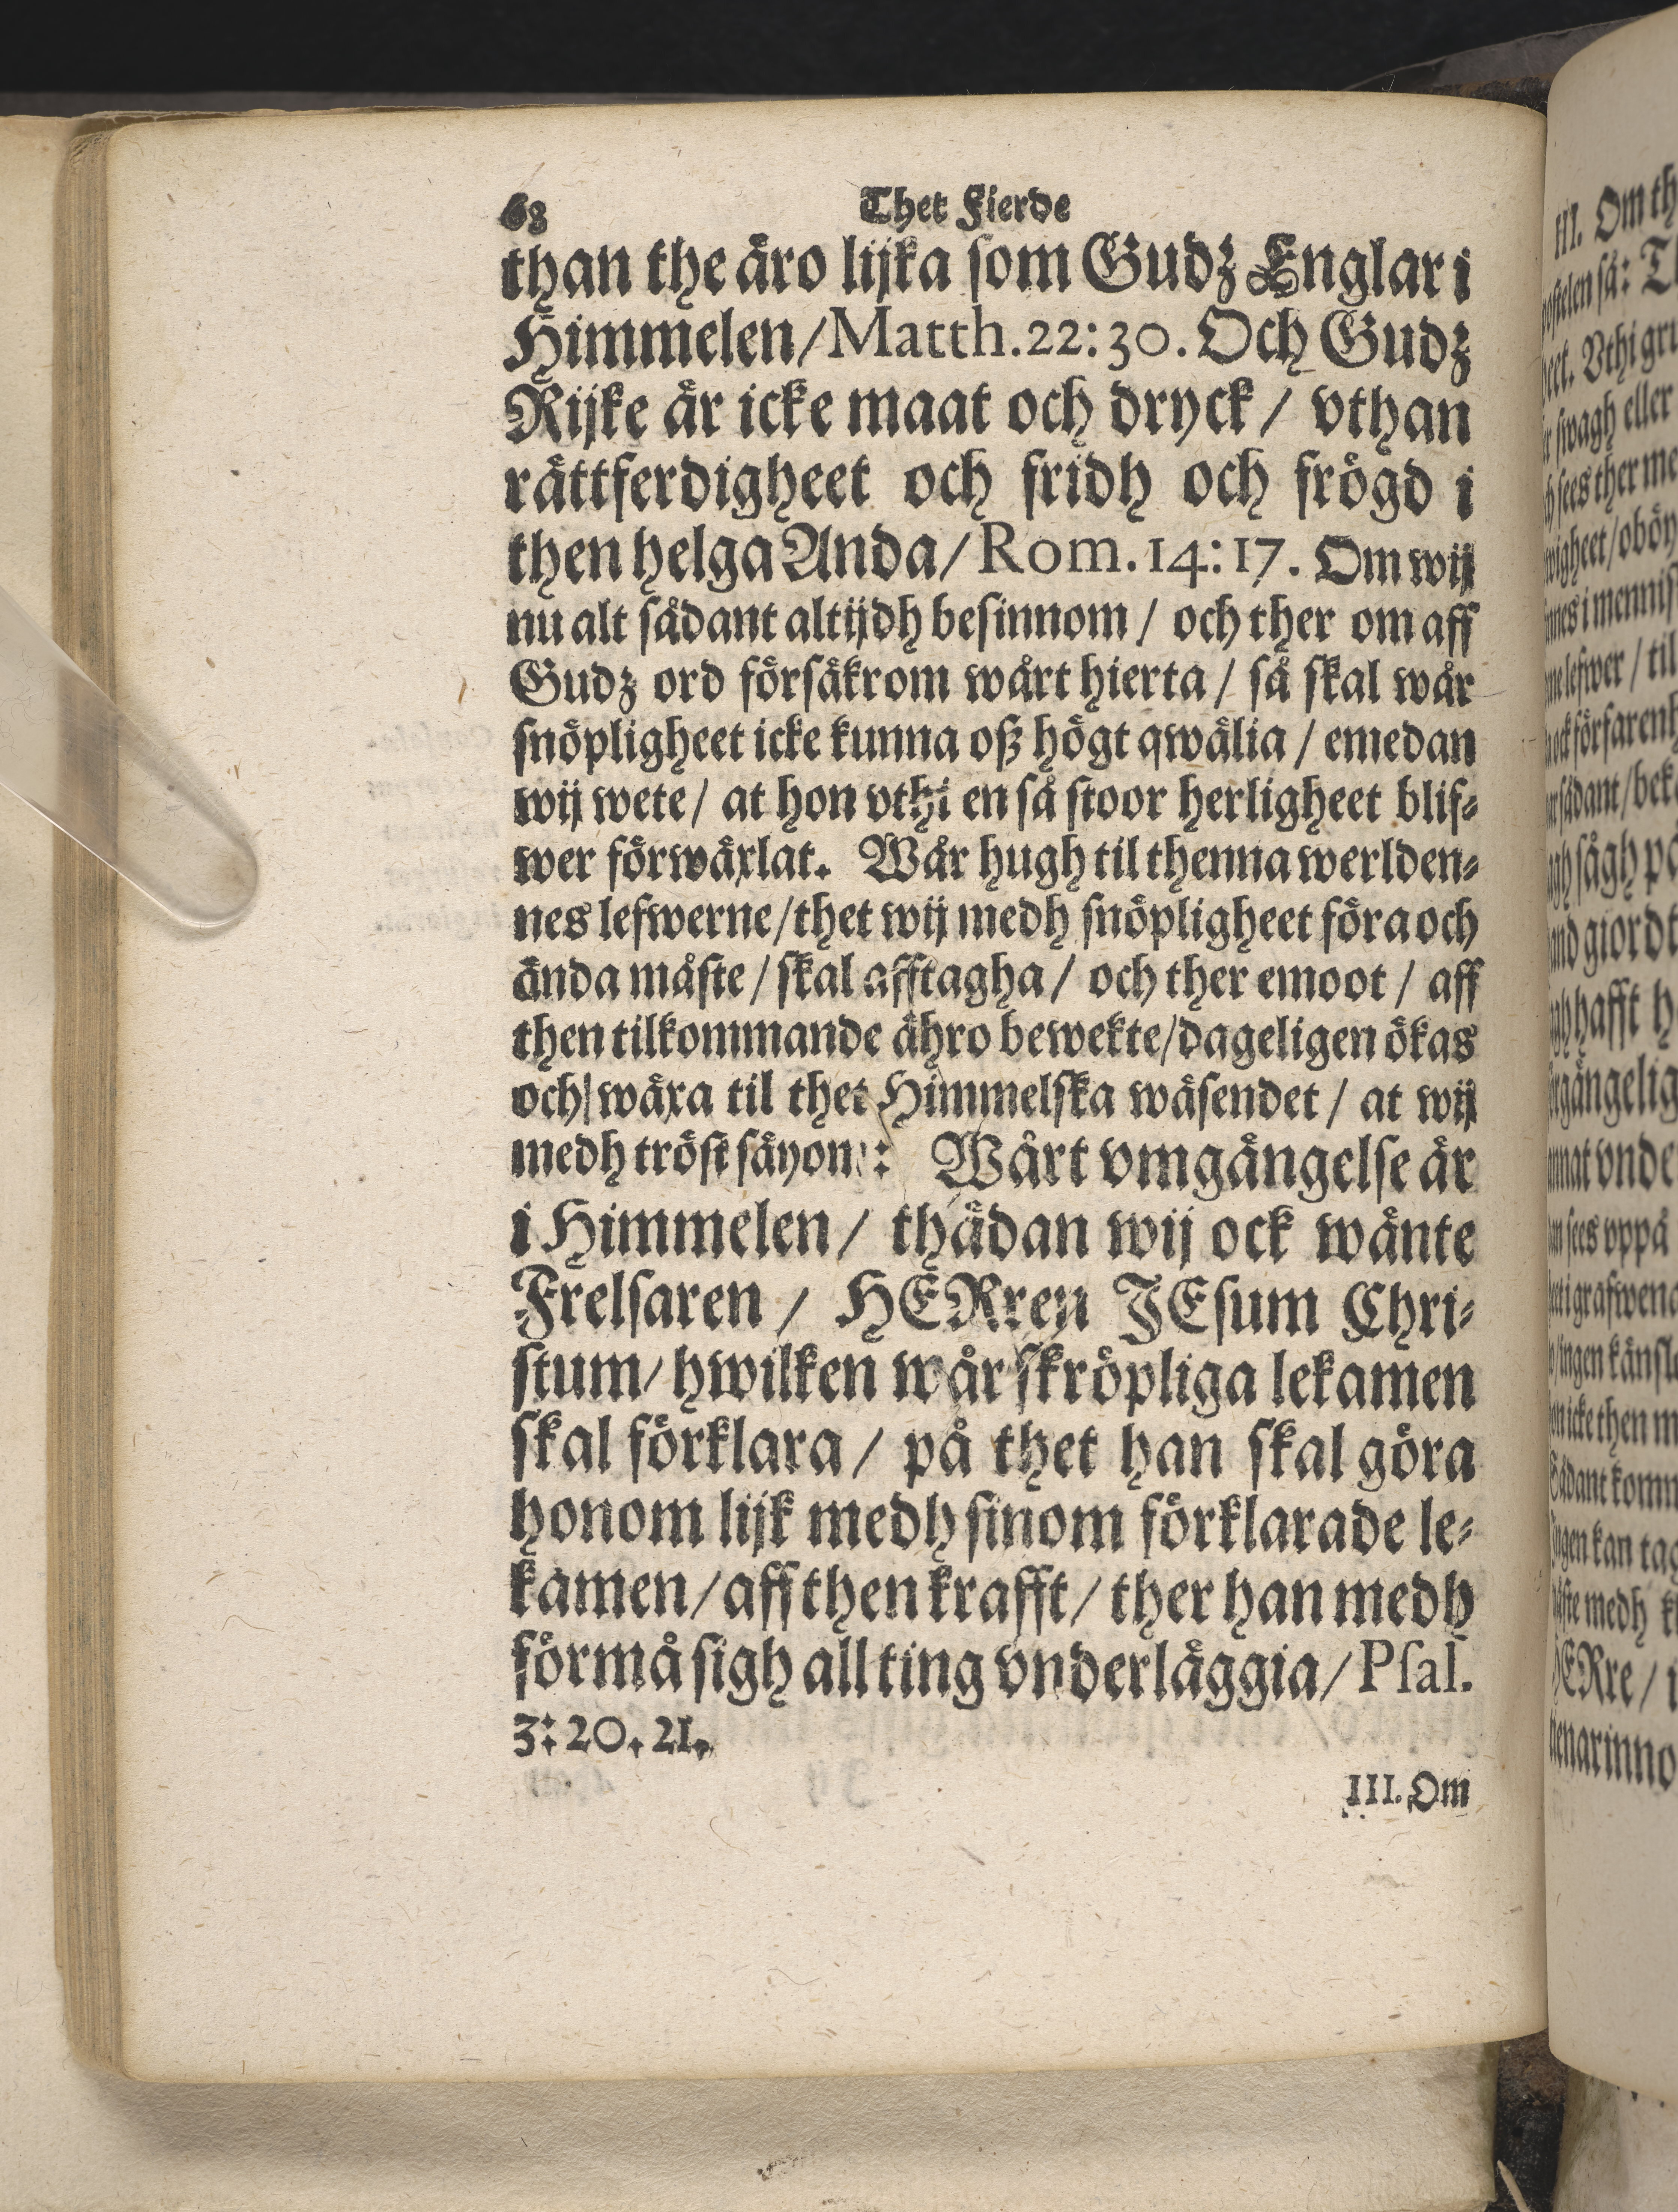 68 Thet Fierde
than the äro lijka som Gudz Englar i
Himmelen/Matth.22:30. Och Gudz
Rijke är icke maat och dryck / vthan
rättferdigheet och fridh och frögd i
then helga Anda/Rom.14:17. Om wij
nu alt sådant altijdh besinnom / och ther om aff
Gudz ord försäkrom wårt hierta / så skal wår
snöpligheet icke kunna oß högt qwälia / emedan
wij wete / at hon vthi en så stoor herligheet blif-
wer förwäxlat. Wår hugh til thenna werlden-
nes lefwerne/thet wij medh snöpligheet föra och
ända måste / skal afftagha / och ther emoot / aff
then tilkommande ähro bewekte/dageligen ökas
och wäxa til thet Himmelska wäsendet / at wij
medh tröst säyom: Wårt vmgängelse är
i Himmelen / thädan wij ock wänte
Frelsaren / HERren JEsum Chri-
stum/ hwilken wår skröpliga lekamen
skal förklara / på thet han skal göra
honom lijk medh sinom förklarade le-
kamen/aff then krafft/ ther han medh
förmå sigh all ting vnderläggia/Psal.
3: 20. 21.
III. Om
III. Om th
swagh eller
sees ther me
giordt
hafft h
vnde
sees vppå
icke then m
kan tag
medh